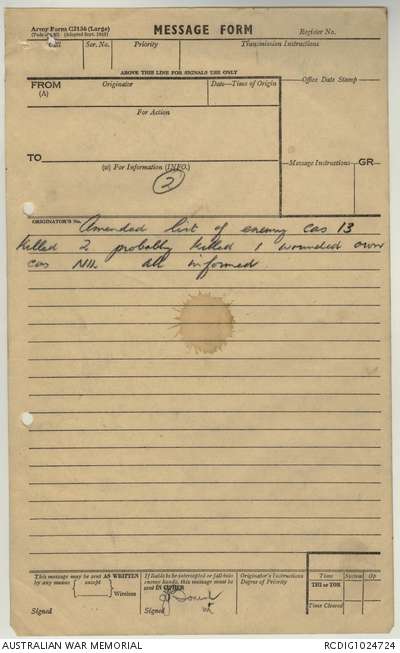 Army Form C2136 (Large)
MESSAGE FORM
Register No.
Call
Ser. No.
Priority
Transmission Instructions
ABOVE THIS LINE FOR SIGNALS USE ONLY
FROM
(A)
Originator
Date—Time of Origin
Office Date Stamp
For Action
TO
(W) For Information (INFO.)
Message Instructions
GR
2
ORIGINATOR'S No.
Amended list of enemy cas 13
killed 2 probably killed 1 wounded own
cas NIL all informed
This message may be sent AS WRITTEN
by any means
except
Wireless
Signed
If liable to be intercepted or fall into
enemy hands, this message must be
sent IN CIPHER
Signed
Originator's Instructions
Degree of Priority
Time
System
Op
THI or TOR
Time Cleared
AUSTRALIAN WAR MEMORIAL
RCDIG1024724